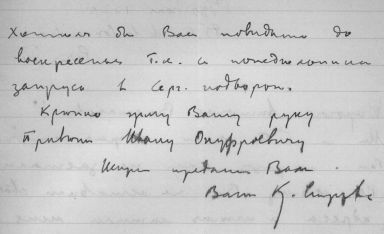 Хотел бы Вас повидать до
воскресенья т.к. с понедельника
запрусь в Серг. подворьи.
Крепко жму Вашу руку
Привет Ивану Онуфриевичу
Искренне преданный Вам
Ваш К. Струве